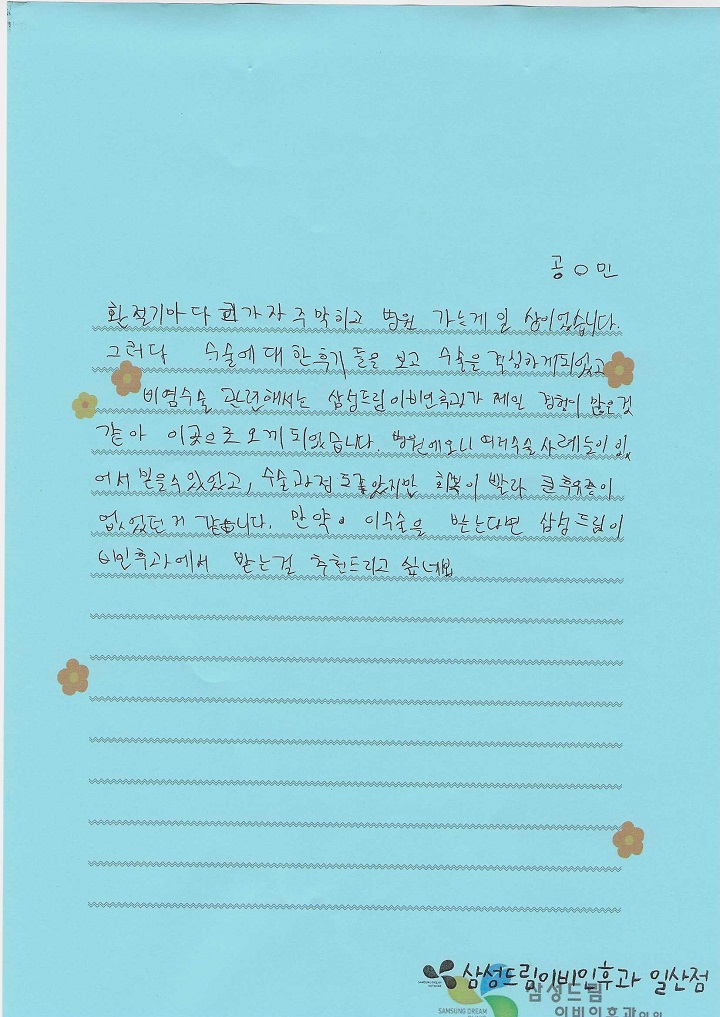 공 ○ 민
환절기마다 코가 자주 막히고 병원 가는게 일 상이었습니다.
그러다 수술에 대한 후기 들을 보고 수술을 결심하게되었고
비염수술 관련해서는 삼성드림이비인후과가 제일 경험이 많은것
같아 이곳으로 오게 되었습니다. 병원에오니 여러수술 사례들이 있
어서 믿을수있었고, 수술과정도 좋았지만 회복이 빨라 큰 후유증이
없었던거 같습니다. 만약 이수술을 받는다면 삼성드림이
비인후과에서 받는걸 추천드리고 싶네요
삼성드림이비인후과 일산점
SAMSUNG DREAM
삼성드림
이비인후과의원